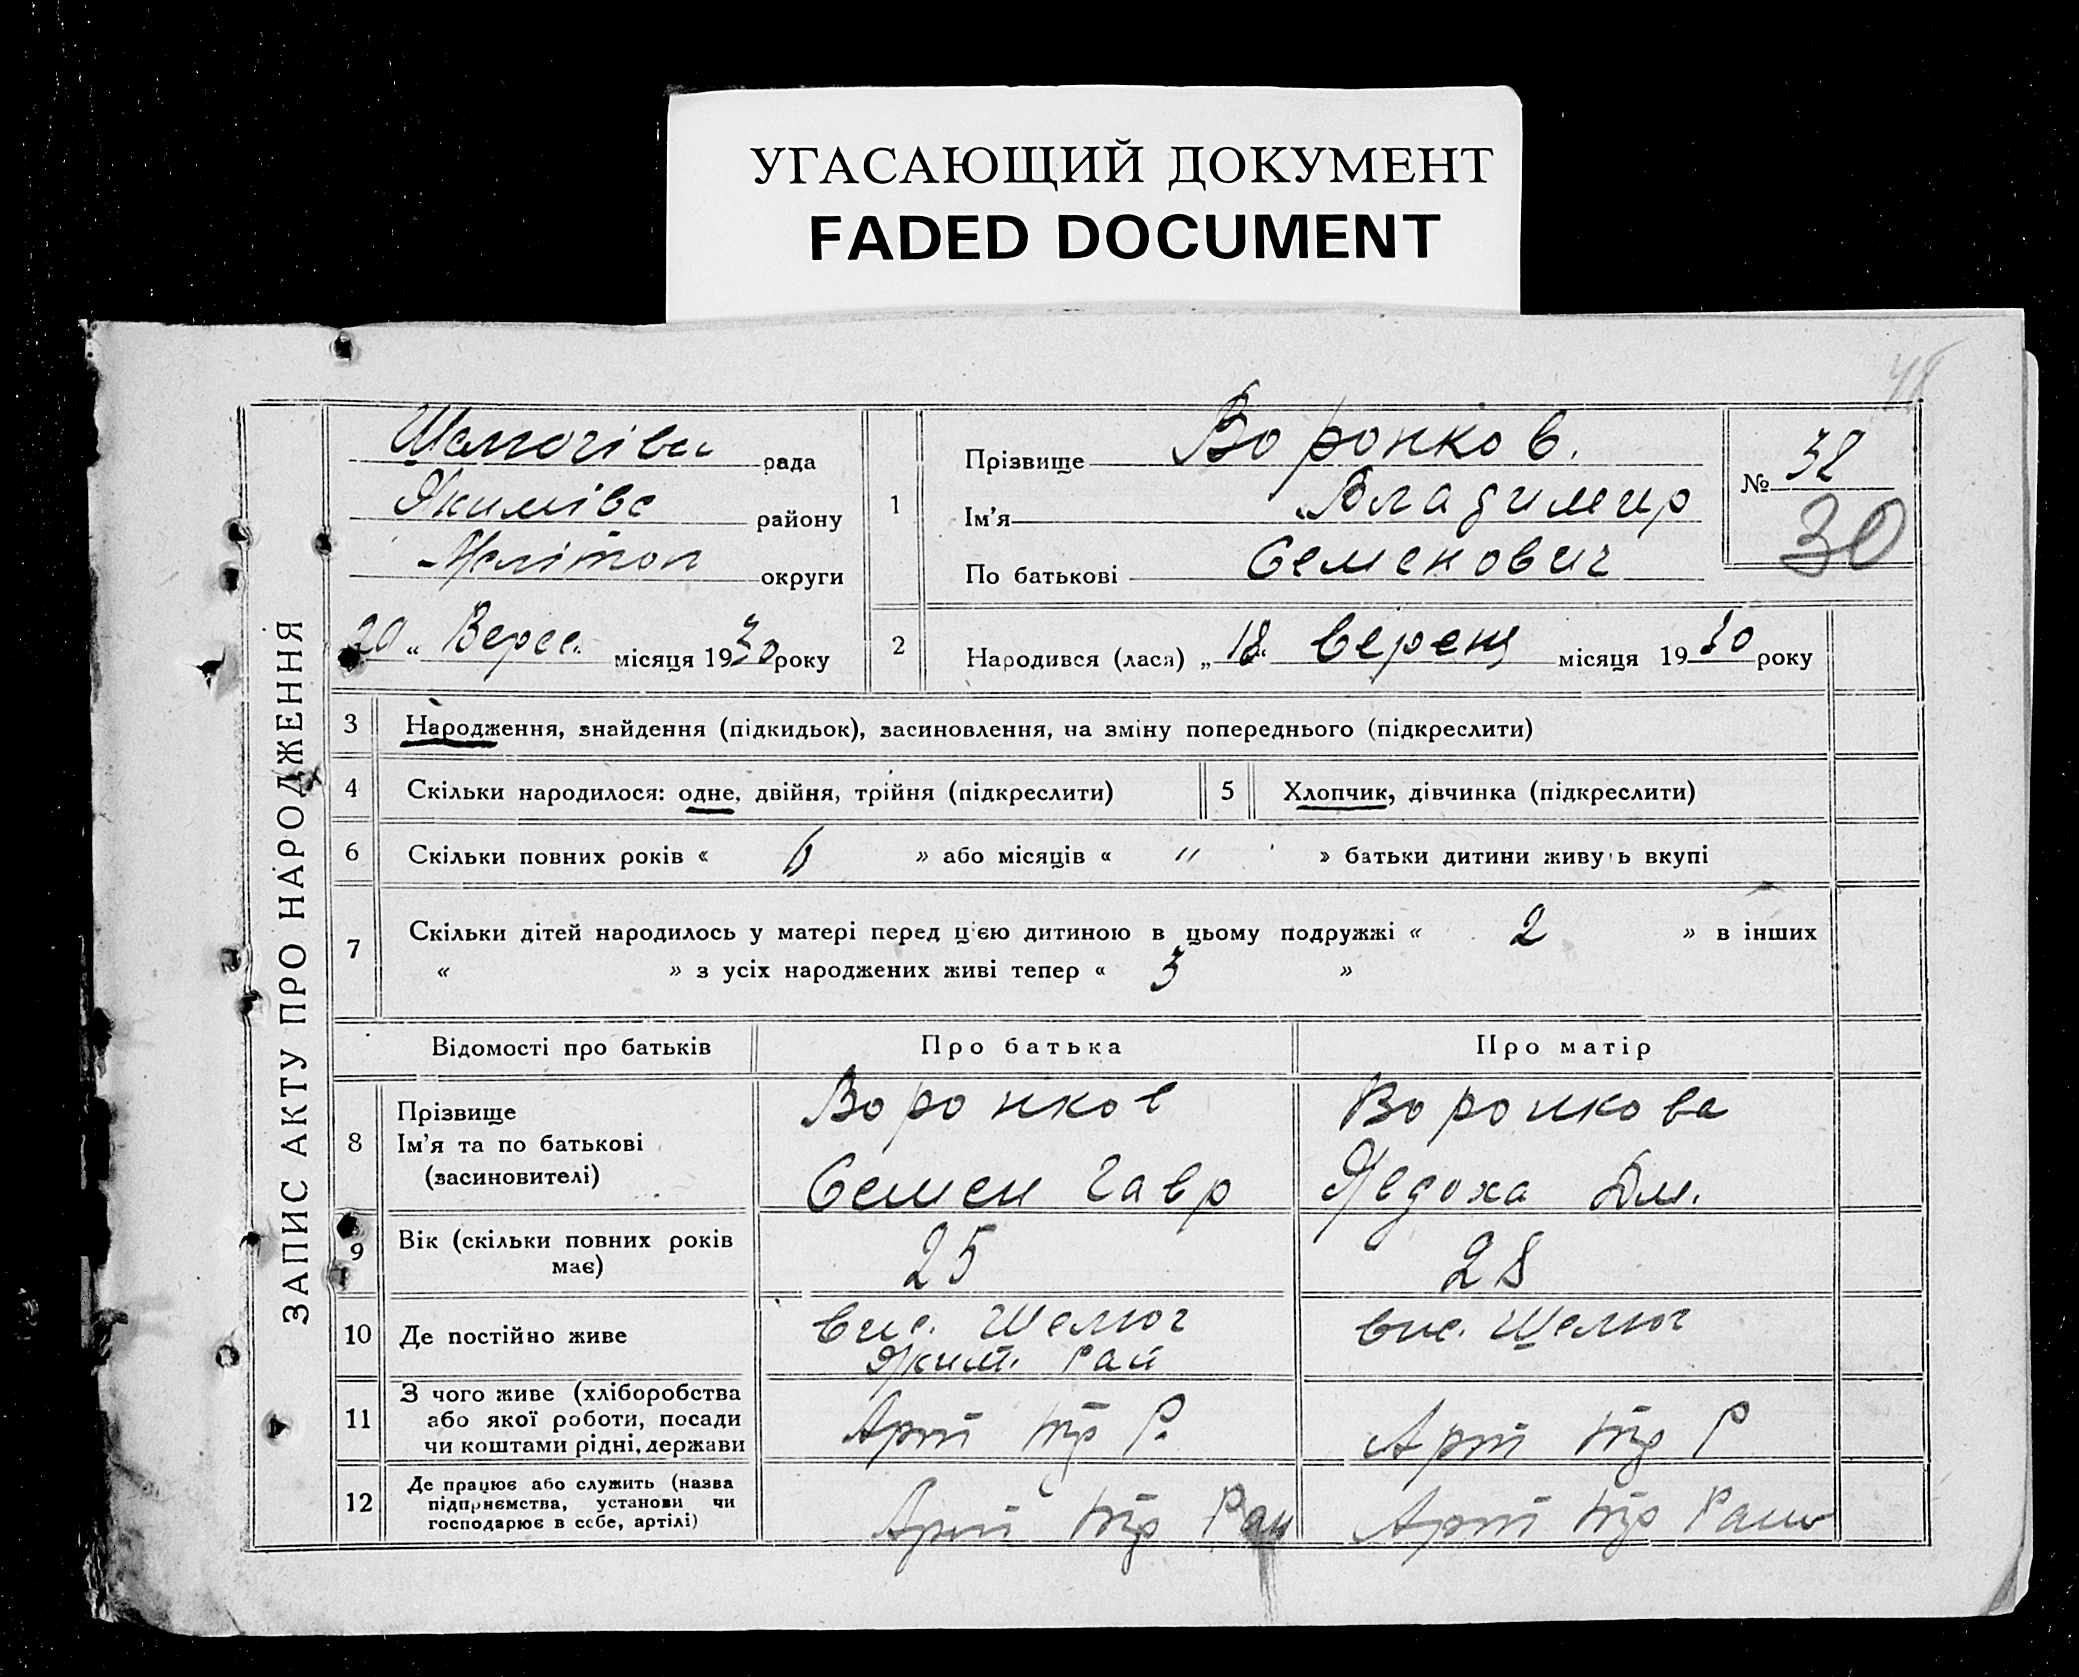 УГАСАЮЩИЙ ДОКУМЕНТ
FADED DOCUMENT
48
ЗАПИС АКТУ ПРО НАРОДЖЕННЯ
рада
Якимівс району
Мелітоп округи
20 „ Верес. місяця 1930 року
1
Прізвище Воронков.
Ім'я Владимир
По батькові Семенович
№ 32
30
2 Народився (лася) „ 18 " верещ місяця 19 30 року
3 Народження, знайдення (підкидьок), засиновлення, на зміну попереднього (підкреслити)
4 Скільки народилося: одне, двійня, трійня (підкреслити) 5 Хлопчик, дівчинка (підкреслити)
6 Скільки повних років « 6 » або місяців « " » батьки дитини живуть вкупі
7 Скільки дітей народилось у матері перед цією дитиною в цьому подружжі « 2 » в інших
« » з усіх народжених живі тепер « 3 »
Відомості про батьків Про батька Про матір
8 Прізвище Воронков Воронкова
Ім'я та по батькові
(засиновителі) Семен Гавр Явдоха Дм.
9 Вік (скільки повних років
має) 25 28
10 Де постійно живе Вис. Шелюг Вис. Шелюг
Яким. рай
11 З чого живе (хліборобства
або якої роботи, посади
чи коштами рідні, держави Арт Р. Арт Р
12 Де працює або служить (назва
підприємства, установи чи
господарює в себе, артілі) Арт Арт